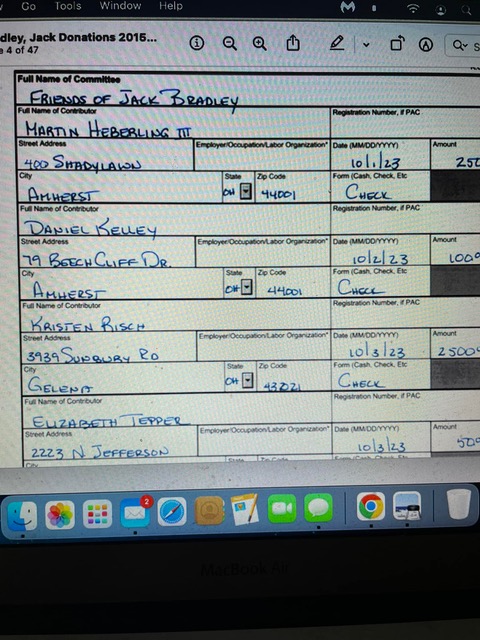 Go Tools Window Help
dley, Jack Donations 2015...
e 4 of 47
Full Name of Committee
FRIENDS OF JACK BRADLEY
Full Name of Contributor Registration Number, if PAC
MARTIN HEBERLING III
Street Address Employer/Occupation/Labor Organization* Date (MM/DD/YYYY) Amount
400 SHADYLAWN 10/1/23 250
City State Zip Code Form (Cash, Check, Etc
AMHERST OH 44001 CHECK
Full Name of Contributor Registration Number, if PAC
DANIEL KELLEY
Street Address Employer/Occupation/Labor Organization* Date (MM/DD/YYYY) Amount
79 BEECH CLIFF DR. 10/2/23 100
City State Zip Code Form (Cash, Check, Etc
AMHERST OH 44001 CHECK
Full Name of Contributor Registration Number, if PAC
KRISTEN RISCH
Street Address Employer/Occupation/Labor Organization* Date (MM/DD/YYYY) Amount
3939 SUNBURY RD 10/3/23 2500
City State Zip Code Form (Cash, Check, Etc
GELENA OH 43021 CHECK
Full Name of Contributor Registration Number, if PAC
ELIZABETH TEPPER
Street Address Employer/Occupation/Labor Organization* Date (MM/DD/YYYY) Amount
2223 N JEFFERSON 10/3/23 50
City State Zip Code Form (Cash, Check, Etc
2
MacBook Air